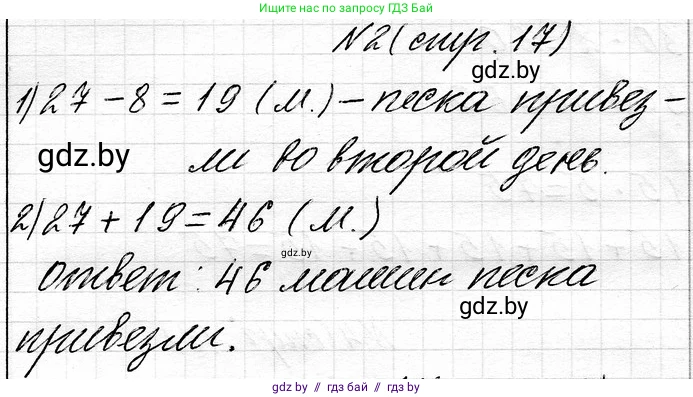 Ищите нас по запросу ГДЗ Бай
N2 (стр. 17)
gdz.by
1) 27 - 8 = 19 (м.) - песка привез-
gdz.by
ли во второй день.
2) 27 + 19 = 46 (м.)
gdz.by
ответ: 46 машин песка
gdz.by
привезли.
gdz.by // гдз бай // gdz.by